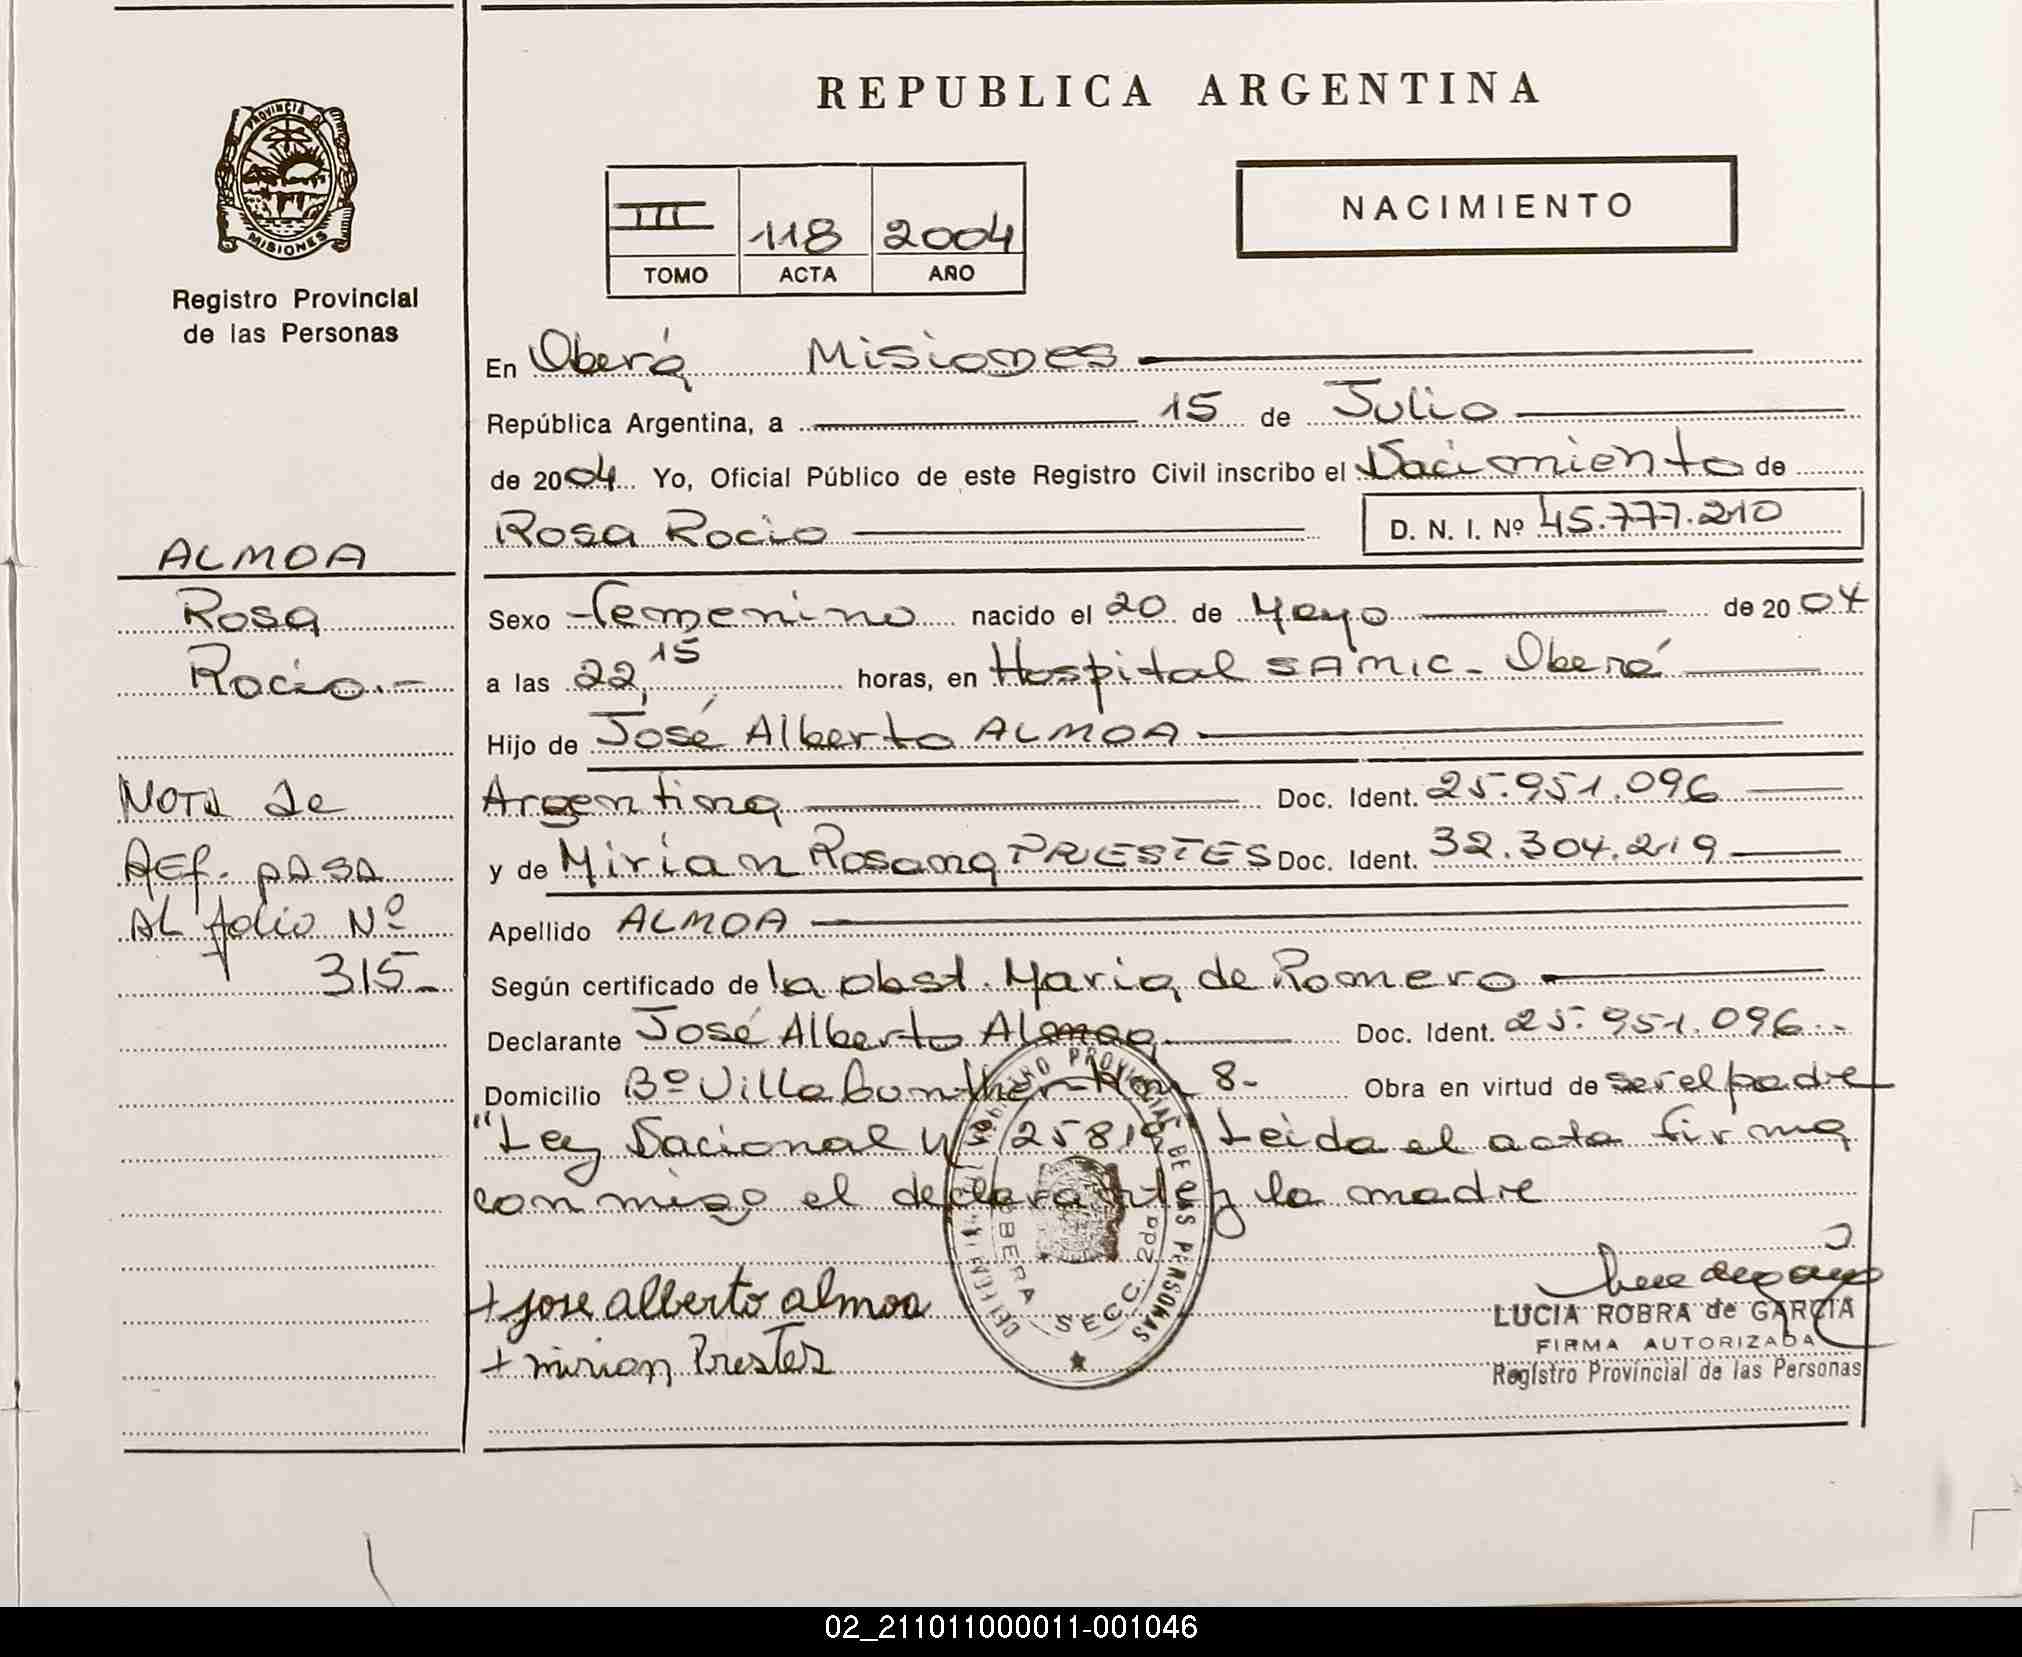 REPUBLICA ARGENTINA
PROVINCIA D
MISIONES
Registro Provincial
de las Personas
III 118 2004
TOMO ACTA AÑO
NACIMIENTO
En Oberá Misiones
República Argentina, a 15 de Julio
de 2004 Yo, Oficial Público de este Registro Civil inscribo el Nacimiento de
Rosa Rocio D. N. I. Nº 45.777.210
ALMOA
Rosa
Rocio.-
Sexo Femenino nacido el 20 de Mayo de 2004
a las 22,15 horas, en Hospital SAMIC - Oberá
Hijo de José Alberto ALMOA
Argentina Doc. Ident. 25.951.096
y de Mirian Rosana PRESTES Doc. Ident. 32.304.219
Apellido ALMOA
Según certificado de la obst. Maria de Romero
Declarante José Alberto Almoa Doc. Ident. 25.951.096.-
Domicilio Bº Villa Gunther 8- Obra en virtud de ser el padre
"Ley Nacional 25819" Leida el acta firma
conmigo el declarante y la madre
Nota de
Ref. pasa
al folio Nº
315-
+ jose alberto almoa
+ mirian Prestes
REGISTRO PROVINCIAL DE LAS PERSONAS
OBERA SECC. 2da
LUCIA ROBRA de GARCIA
FIRMA AUTORIZADA
Registro Provincial de las Personas
02_211011000011-001046